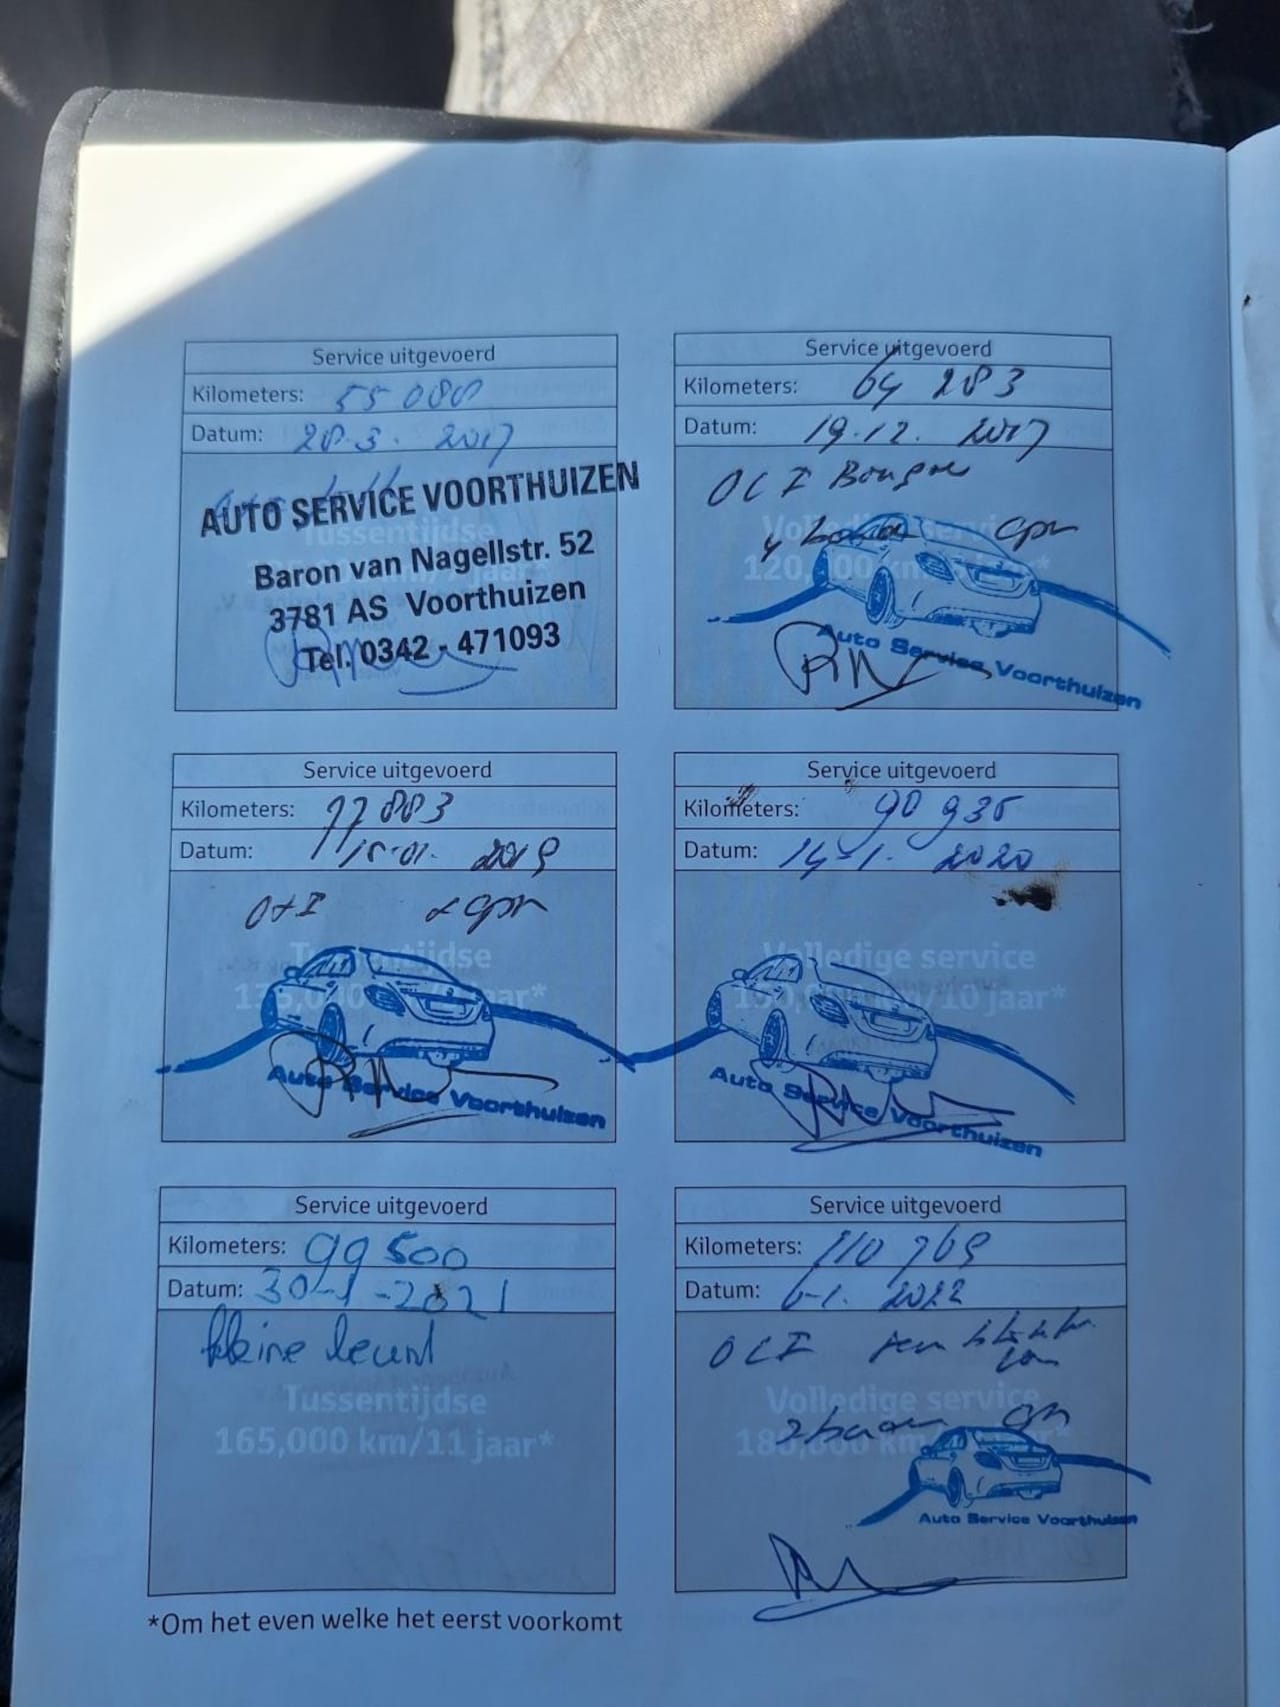 Service uitgevoerd
Kilometers: 55 080
Datum: 28-3. 2017
AUTO SERVICE VOORTHUIZEN
Tussentijdse
Baron van Nagellstr. 52
3781 AS Voorthuizen
Tel. 0342 - 471093
Service uitgevoerd
Kilometers: 64 283
Datum: 19.12. 2017
Volledige service
120,000 km
Auto Service Voorthuizen
Service uitgevoerd
Kilometers: 77 883
Datum: 15-01. 2019
Tussentijdse
135,000 jaar*
Auto Service Voorthuizen
Service uitgevoerd
Kilometers: 90 935
Datum: 14-1. 2020
Volledige service
150,000 km/10 jaar*
Auto Service Voorthuizen
Service uitgevoerd
Kilometers: 99 500
Datum: 30-1-2021
kleine beurt
Tussentijdse
165,000 km/11 jaar*
Service uitgevoerd
Kilometers: 110 769
Datum: 6-1. 2022
Volledige service
180,000 km
Auto Service Voorthuizen
*Om het even welke het eerst voorkomt